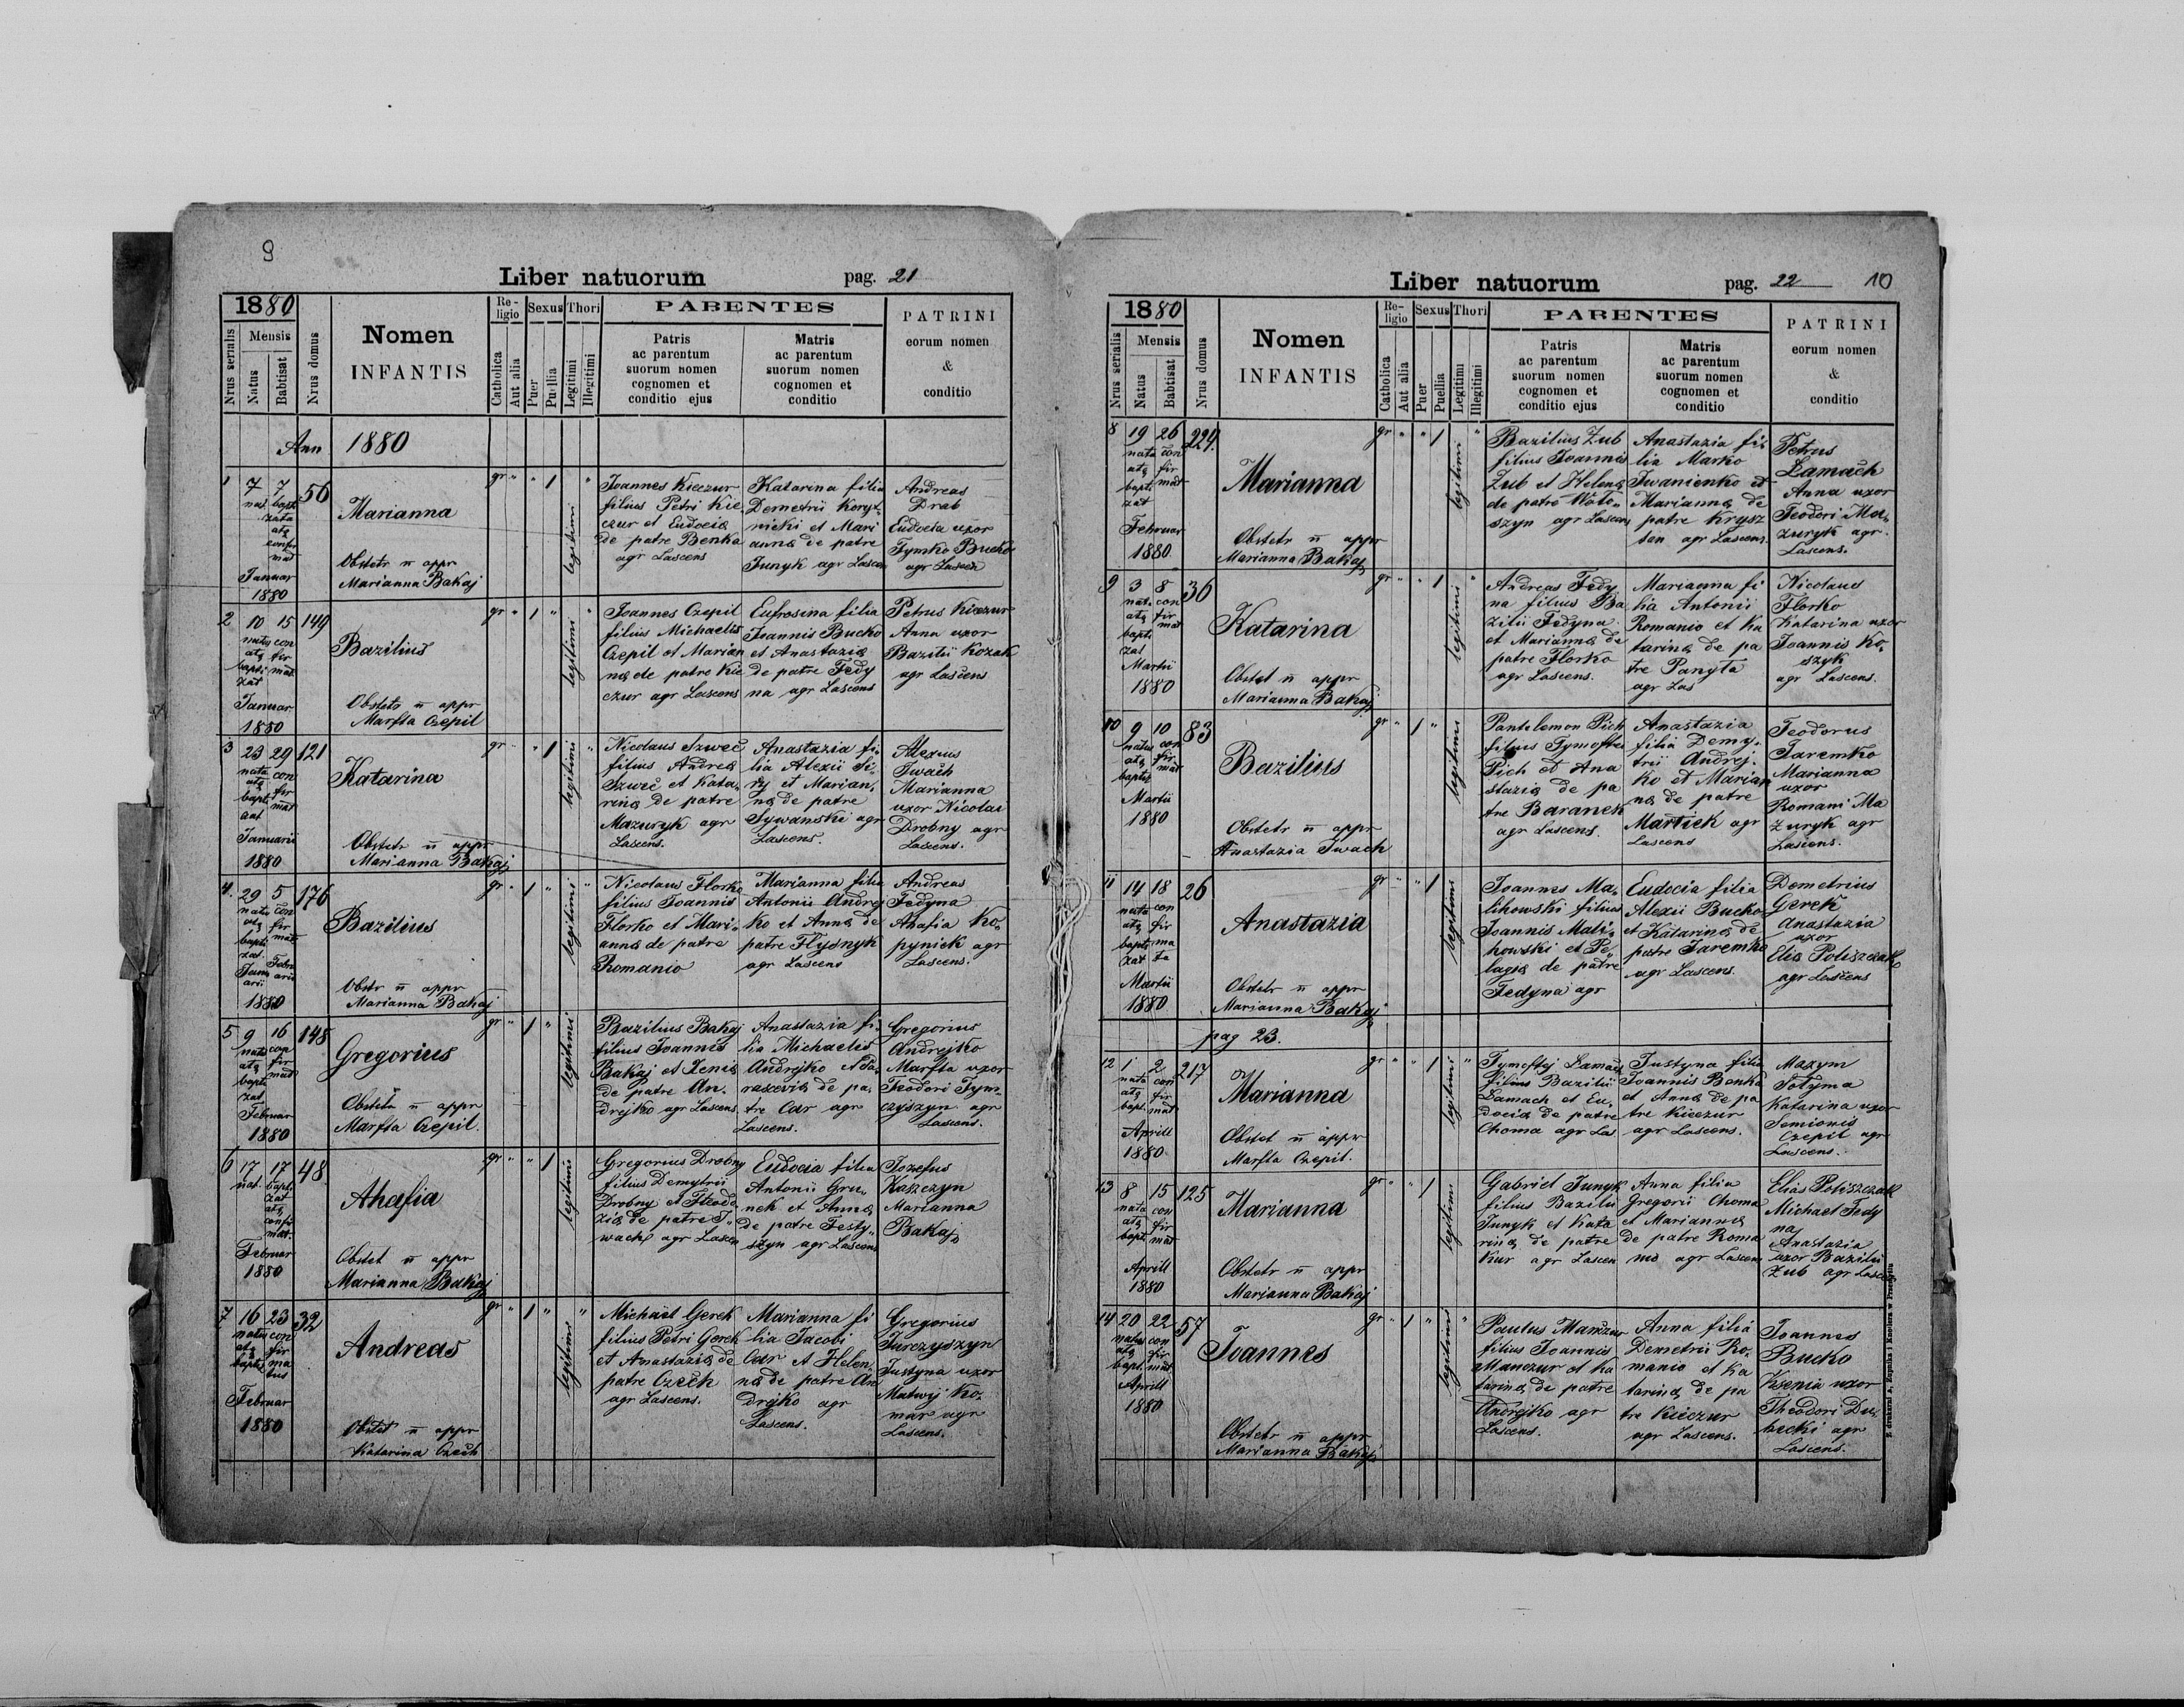 9
Liber natuorum pag. 21
1880
Nrus serialis
Mensis
Natus
Babtisat
Nrus domus
Nomen
INFANTIS
Re-
ligio
Catholica
Aut alia
Sexus
Puer
Puellia
Thori
Legitimi
Illegitimi
PARENTES
Patris
ac parentum
suorum nomen
cognomen et
conditio ejus
Matris
ac parentum
suorum nomen
cognomen et
conditio
PATRINI
eorum nomen
&
conditio
Ann 1880
1 7 7 56
nat. bapti
zata
atq
confir
mat
Januar
1880
Marianna
Obstetr n appr
Marianna Bakaj
gr " " 1 legitimi "
Joannes Kiczur
filius Petri Kic
czur et Eudocia
de patre Benka
agr Lascens
Katarina filia
Demetrii Koryt-
nicki et Mari
anna de patre
Junyk agr Lascen
Andreas
Drab
Eudocia uxor
Tymko Bucko
agr Lascen
2 10 15 149
natus con
atq fir
bapti mat
zat
Januar
1880
Bazilius
Obstetr n appr
Marfta Czepil
gr " 1 " legitimi "
Joannes Czepil
filius Michaelis
Czepil et Marian
na de patre Kic
czur agr Lascens
Eufrosina filia
Joannis Bucko
et Anastazia
de patre Fedy
na agr Lascens
Petrus Kiczur
Anna uxor
Bazilii Kozak
agr Lascens
3 23 29 121
nata con
atq fir
bapt mat
Januarii
1880
Katarina
Obstetr n appr
Marianna Bakaj
gr " " 1 legitimi "
Nicolaus Szwec
filius Andrea
Szwec et Kata-
rina de patre
Mazuryk agr
Lascens.
Anastazia fi-
lia Alexii Si-
ry et Marian-
na de patre
Sywanski agr
Lascens.
Alexius
Iwach
Marianna
uxor Nicolai
Drobny agr
Lascens.
4. 29 5 176
natus con
atq fir
bapti mat
zat.
Janu Febru
arii arii
1880
Bazilius
Obstr n appr
Marianna Bakaj
gr " 1 " legitimi "
Nicolaus Florko
filius Joannis
Florko et Mari-
anna de patre
Romanio
Marianna filia
Antonii Andrej
ko et Anna de
patre Flydnyk
agr Lascens
Andreas
Fedyna
Ahafia Ko-
pyniek agr
Lascens.
5 9 16 148
natus con
atq fir
bapti mat
zat
Februar
1880
Gregorius
Obstetr n appr
Marfta Czepil.
gr " 1 " legitimi
Bazilius Bakaj
filius Joannis
Bakaj et Xenia
de patre An-
drejko agr Lascens.
Anastazia fi-
lia Michaelis
Andrejko et Pa-
rascevia de pa-
tre Car agr
Lascens.
Gregorius
Andrejko
Marfta uxor
Teodori Tym-
czyszyn agr
Lascens.
6 17 17 48
nat. bapti
zat
atq
confir
mat.
Februar
1880
Ahafia
Obstet n appr
Marianna Bakaj
gr " " 1 legitimi
Gregorius Drobny
filius Demytrii
Drobny et Theodo
zia de patre I-
wach agr Lascen
Eudocia filia
Antonii Gru-
nek et Anna
de patre Festy-
szyn agr Lascens
Jozefus
Kaszczyn
Marianna
Bakaj
7 16 23 32
natus con
atq fir
bapti ma
tus
Februar
1880
Andreas
Obstet n appr
Katarina Czech
gr " 1 " legitimi "
Michael Gerek
filius Petri Gerek
et Anastazia de
patre Czech
agr Lascens.
Marianna fi
lia Jacobi
Car et Helen-
na de patre An
drejko agr
Lascens.
Gregorius
Jurczyszyn
Justyna uxor
Matwij Ko-
mar agr
Lascens.
Liber natuorum pag. 22 10
1880
Nrus serialis
Mensis
Natus
Babtisat
Nrus domus
Nomen
INFANTIS
Re-
ligio
Catholica
Aut alia
Sexus
Puer
Puellia
Thori
Legitimi
Illegitimi
PARENTES
Patris
ac parentum
suorum nomen
cognomen et
conditio ejus
Matris
ac parentum
suorum nomen
cognomen et
conditio
PATRINI
eorum nomen
&
conditio
8 19 26 229.
nata con
atq fir
bapti mat
zat
Februar
1880
Marianna
Obstetr n appr
Marianna Bakaj
gr " " 1 legitimi "
Bazilius Zub
filius Joannis
Zub et Helena
de patre Woto-
szyn agr Lascens
Anastazia fi-
lia Marko
Iwanienko et
Marianna de
patre Krysz
ten agr Lascens.
Petrus
Lamach
Anna uxor
Teodori Ma-
zuryk agr.
Lascens.
9 3 8 36
nat. con
atq fir
bapti mat
zat
Martii
1880
Katarina
Obstet n appr
Marianna Bakaj
gr " " 1 legitimi "
Andreas Fedy
na filius Ba
zilii Fedyna
et Marianna de
patre Florko
agr Lascens.
Marianna fi
lia Antonii
Romanio et Ka
tarina de pa
tre Panyta
agr Las
Nicolaus
Florko
Katarina uxor
Joannis Ko-
szyk
agr Lascens.
10 9 10 83
natus con
atq fir
baptiz mat
Martii
1880
Bazilius
Obstetr n appr
Anastazia Iwach
gr " 1 " legitimi
Pantelemon Pich
filius Tymoftei
Pich et Ana
stazia de pa
tre Baranek
agr Lascens.
Anastazia
filia Demy-
trii Andrej-
ko et Marian
na de patre
Martick agr
Lascens
Teodorus
Jaremko
Marianna
uxor
Romani Ma
zuryk agr
Lascens.
11 14 18 26
nata con
atq fir
bapti ma
zat ta
Martii
1880
Anastazia
Obstetr n appr
Marianna Bakaj
gr " " 1 legitimi
Joannes Ma-
lihowski filius
Joannis Mali-
howski et Pe-
lagia de patre
Fedyna agr
Eudocia filia
Alexii Bucko
et Katarina de
patre Jaremko
agr Lascens.
Demetrius
Gerek
Anastazia
uxor
Elia Poliszczak
agr Lascens
pag 23.
12 1 2 217
nata con
atq fir
bapt. mat
Aprill
1880
Marianna
Obstet n appr
Marfta Czepil.
gr " " 1 legitimi "
Tymoftij Lamach
filius Bazilii
Lamach et Eu-
docia de patre
Choma agr Las
Justyna filia
Joannis Benka
et Anna de pa
tre Kiczur
agr Lascens.
Maxym
Sotyma
Katarina uxor
Semionis
Czepil agr
Lascens.
13 8 15 125
nata con
atq fir
bapt mat
Aprill
1880
Marianna
Obstetr n appr
Marianna Bakaj
gr " " 1 legitimi
Gabriel Junyk
filius Bazilii
Junyk et Kata
rina de patre
Kur agr Lascen
Anna filia
Gregorii Choma
et Marianna
de patre Roma
nio agr Lascens
Elias Poliszczak
Michael Fedy
na
Anastazia
uxor Bazilii
Zub agr Lascens
14 20 22 57
natus con
atq fir
bapt. mat
Aprill
1880
Joannes
Obstetr n appr
Marianna Bakaj
gr " 1 " legitimi "
Paulus Manczur
filius Joannis
Manczur et Ka
tarina de patre
Andrejko agr
Lascens.
Anna filia
Demetrii Ro-
manio et Ka
tarina de pa
tre Kiczur
agr Lascens.
Joannes
Bucko
Ksenia uxor
Theodori Du-
becki agr
Lascens.